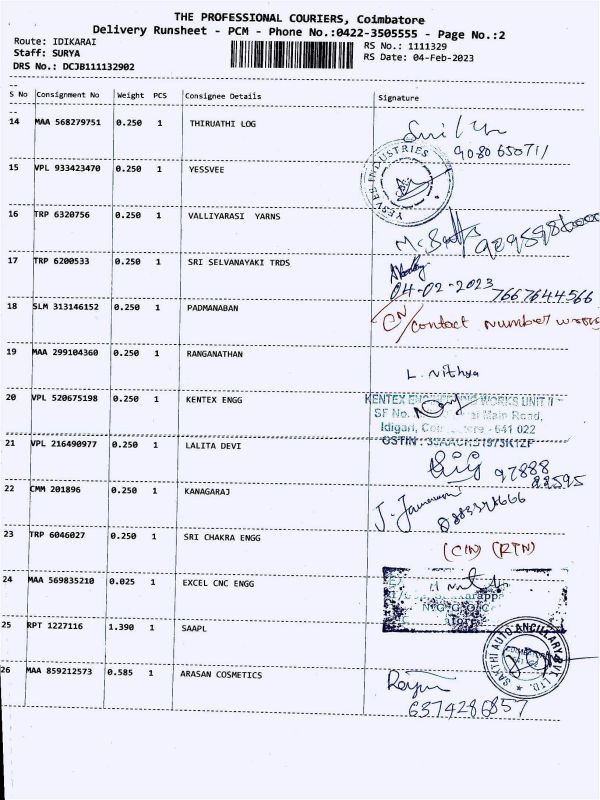 THE PROFESSIONAL COURIERS, Coimbatore
Delivery Runsheet - PCM - Phone No.:0422-3505555 - Page No.:2
Route: IDIKARAI
RS No.: 1111329
Staff: SURYA
RS Date: 04-Feb-2023
DRS No.: DCJB111132902
S No Consignment No Weight PCS Consignee Details Signature
14 MAA 568279751 0.250 1 THIRUATHI LOG
9080650711
15 VPL 933423470 0.250 1 YESSVEE
YESVEE INDUSTRIES
16 TRP 6320756 0.250 1 VALLIYARASI YARNS
17 TRP 6200533 0.250 1 SRI SELVANAYAKI TRDS
04-02-2023 7667644566
18 SLM 313146152 0.250 1 PADMANABAN
CN/contact number wrong
19 MAA 299104360 0.250 1 RANGANATHAN
L. Nithya
20 VPL 520675198 0.250 1 KENTEX ENGG
KENTEX WORKS UNIT II
SF No. Main Road,
Idigari, - 641 022
GSTIN : 33AACHS1973K1ZF
21 VPL 216490977 0.250 1 LALITA DEVI
97888
22 CMM 201896 0.250 1 KANAGARAJ
23 TRP 6046027 0.250 1 SRI CHAKRA ENGG
(CIN) (RTN)
24 MAA 569835210 0.025 1 EXCEL CNC ENGG
25 RPT 1227116 1.390 1 SAAPL
SAKTHI AUTO ANCILLARY PVT. LTD.
26 MAA 859212573 0.585 1 ARASAN COSMETICS
6374286857